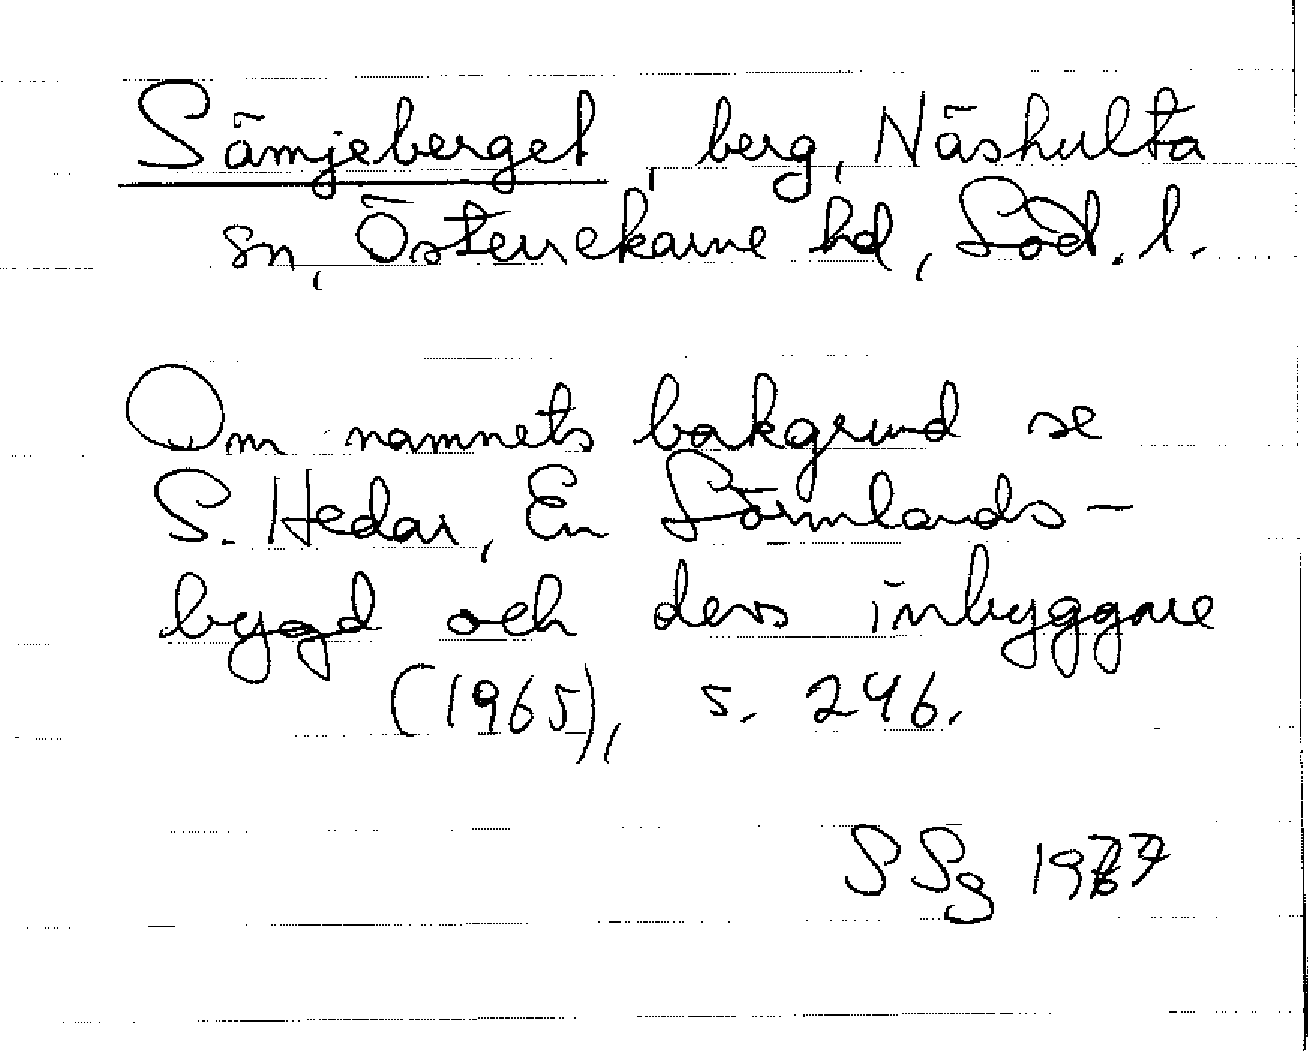 Sämjeberget, berg, Näshulta
sn, Österrekarne hd, Söd. l.
Om namnets bakgrund se
S. Hedar, En Sörmlands-
bygd och dess inbyggare
(1965), s. 246.
SSg 1977